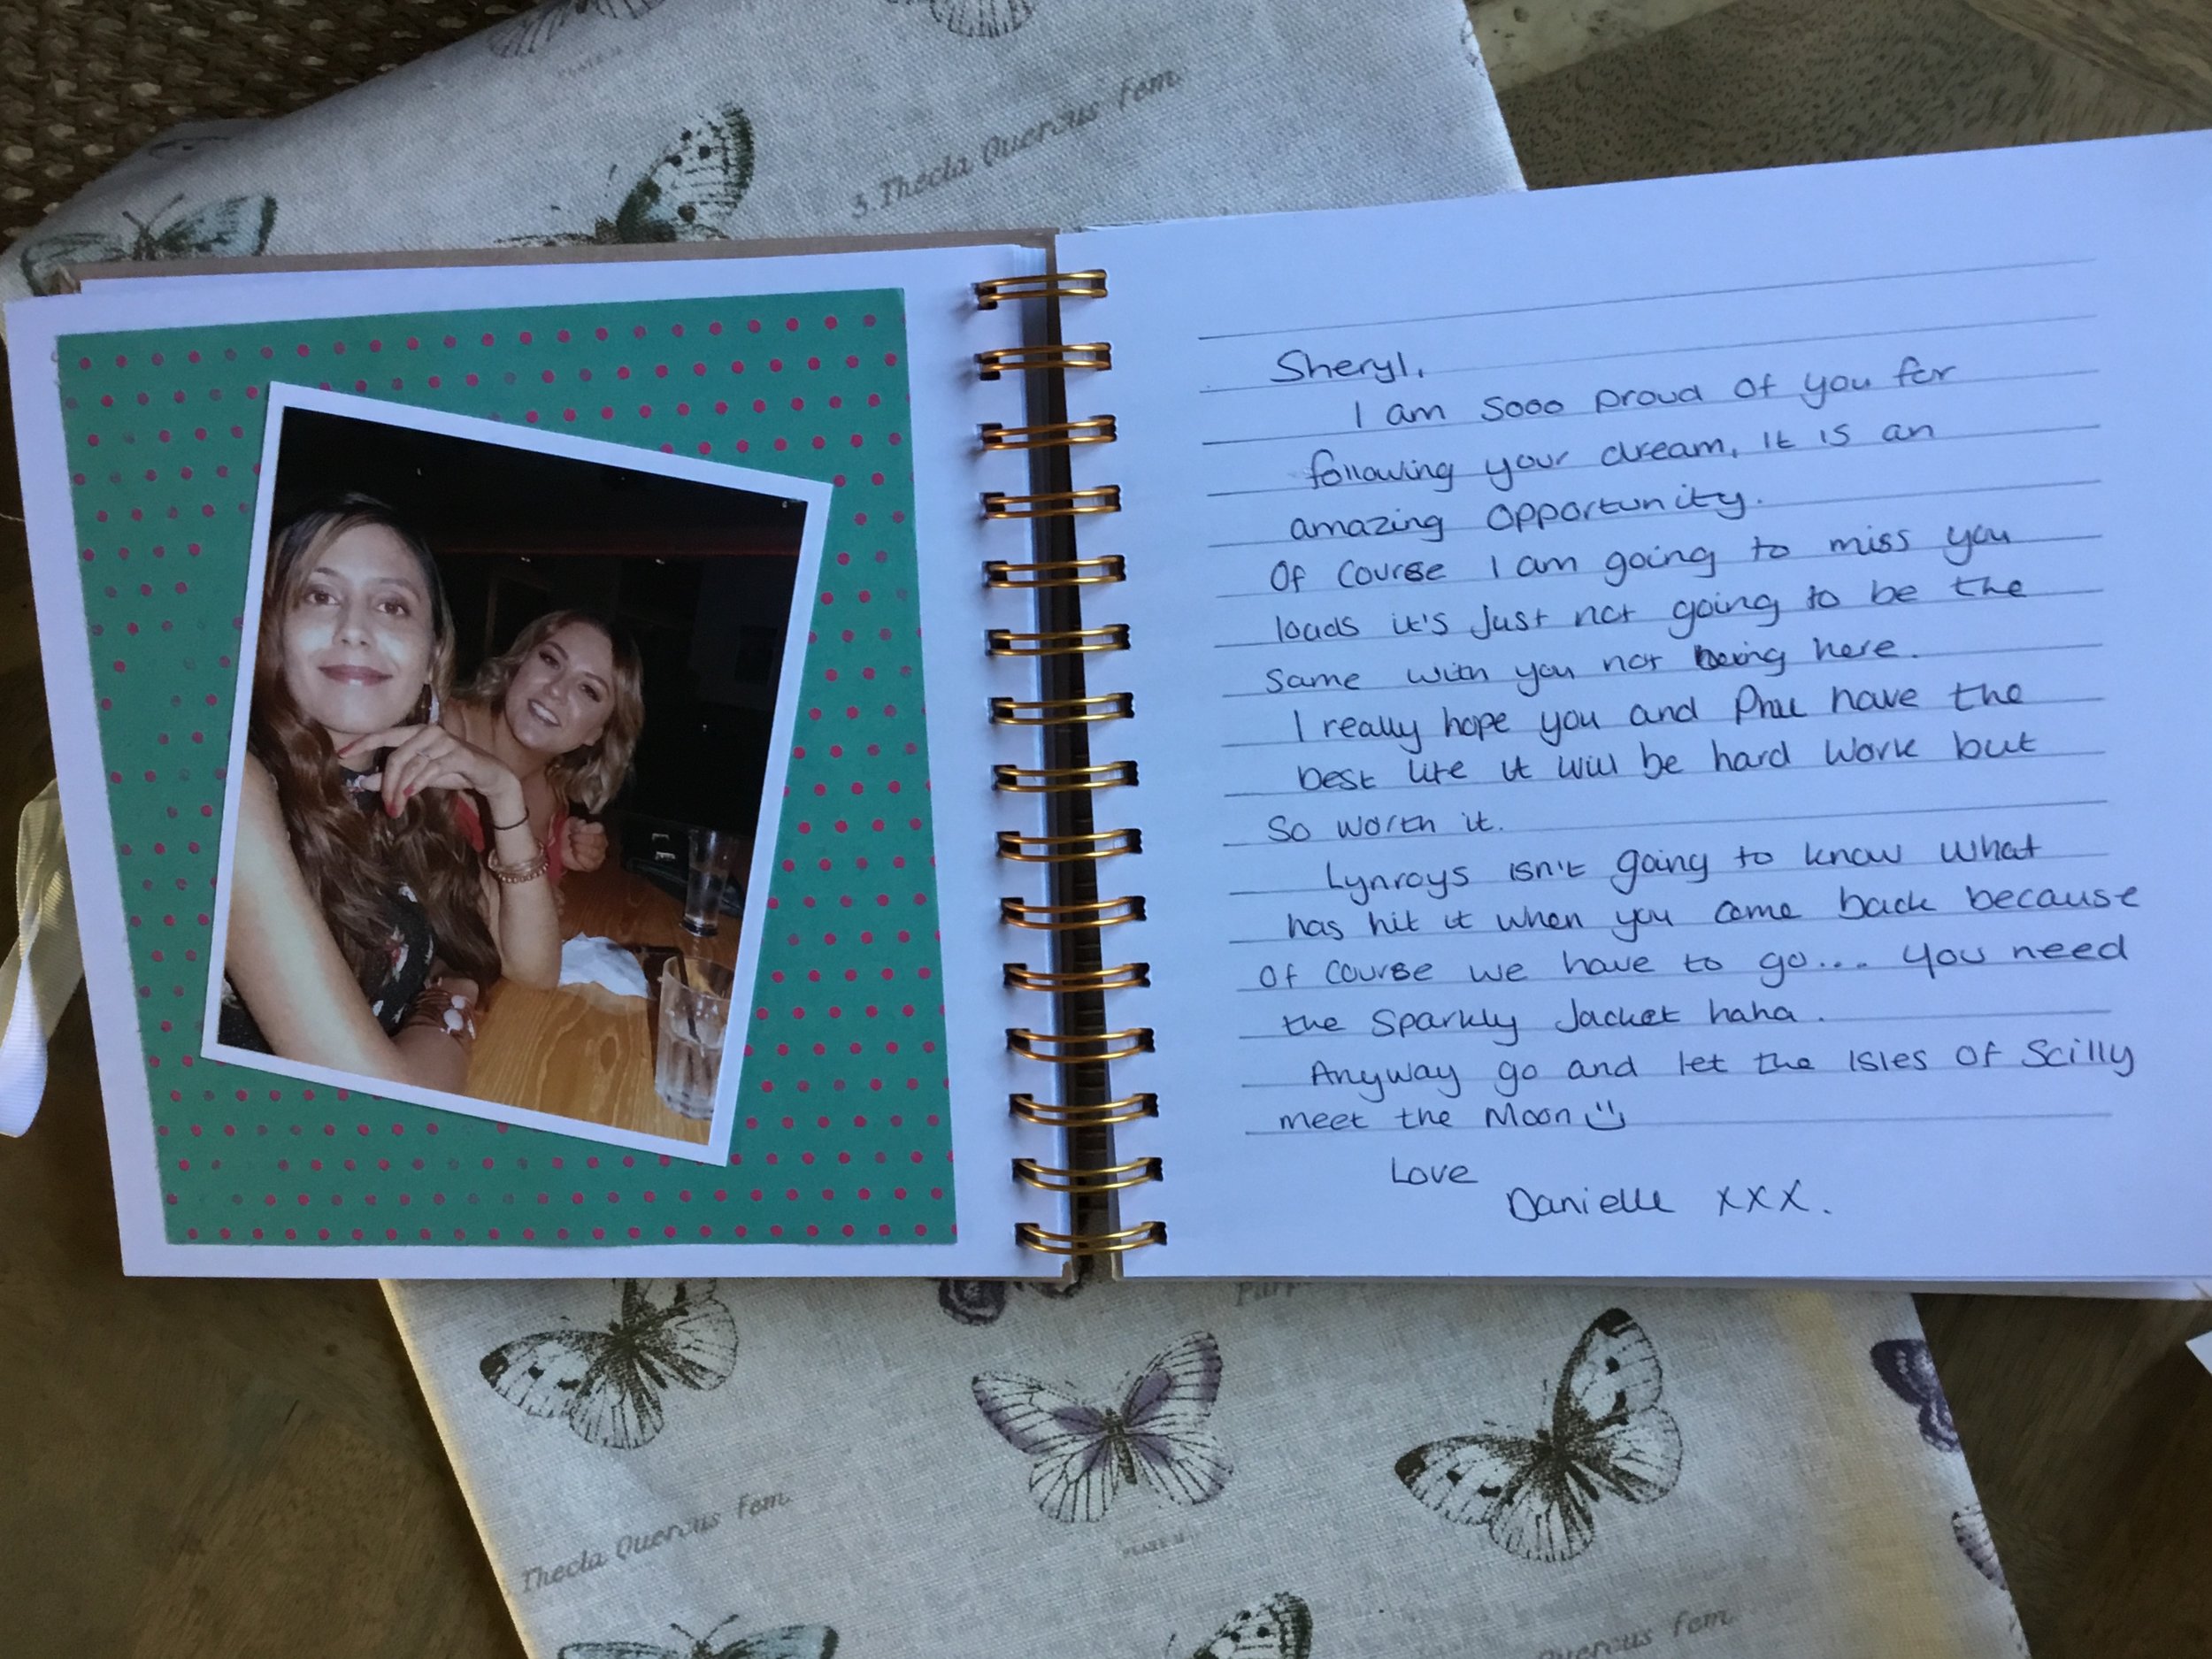 3. Thecla Quercus fem.
Sheryl,
I am sooo proud of you for
following your dream, it is an
amazing opportunity.
Of course I am going to miss you
loads it's just not going to be the
same with you not being here.
I really hope you and Phil have the
best life it will be hard work but
so worth it.
Lynroys isn't going to know what
has hit it when you come back because
of course we have to go... you need
the sparkly jacket haha.
Anyway go and let the Isles of Scilly
meet the Moon
Love
Danielle xxx.
Thecla Quercus fem.
Quercus fem.